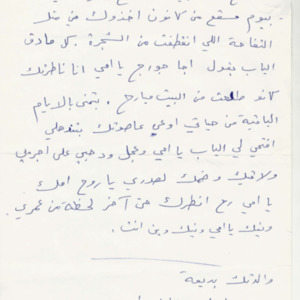 بيوم مسقع من كانون أخذوك من متل
التفاحة اللي انقطفت من الشجرة. بكل ما دق
الباب بقول اجا جورج يا امي انا ناطرتك
كانو طلعت من البيت مبارح. بتمنى بالايام
الباقية من حياتي اوعى عاصوتك بتندهلي
افتحي لي الباب يا امي وعجل ودحبي على اجريي
ولاقيك وضمك لصدري يا روح امك
يا امي رح انطرك حتى آخر لحظة من عمري
وينك يا امي وينك وين انت.
والدتك بديعة